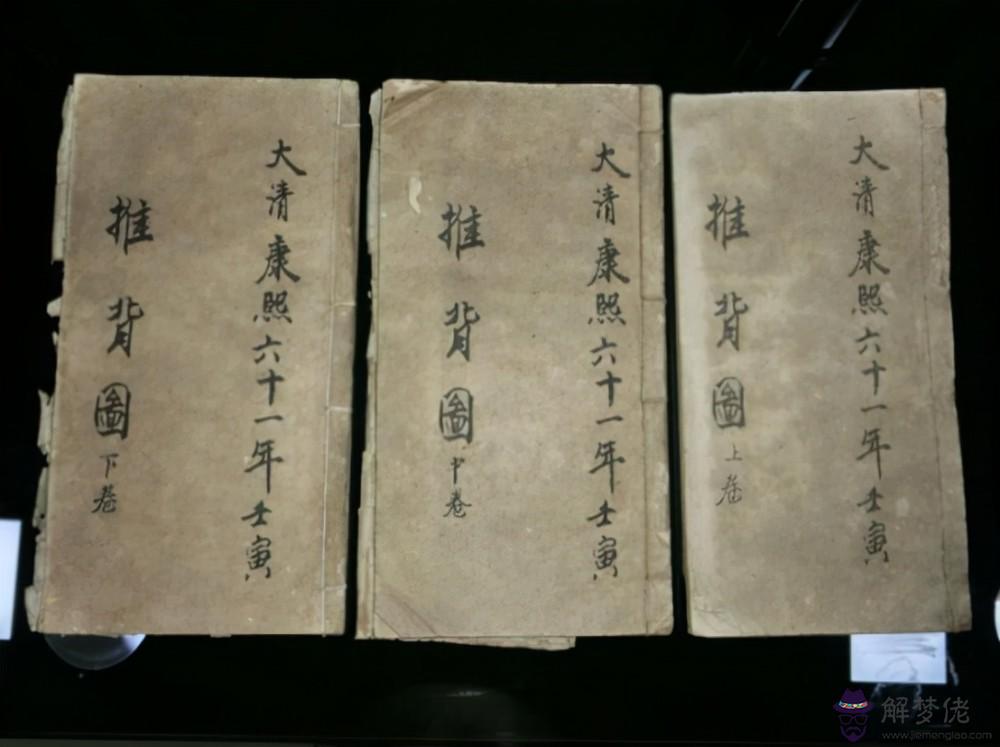 大清康熙六十一年壬寅
推背圖上卷
大清康熙六十一年壬寅
推背圖中卷
大清康熙六十一年壬寅
推背圖下卷
解梦佬
www.jiemenglao.com